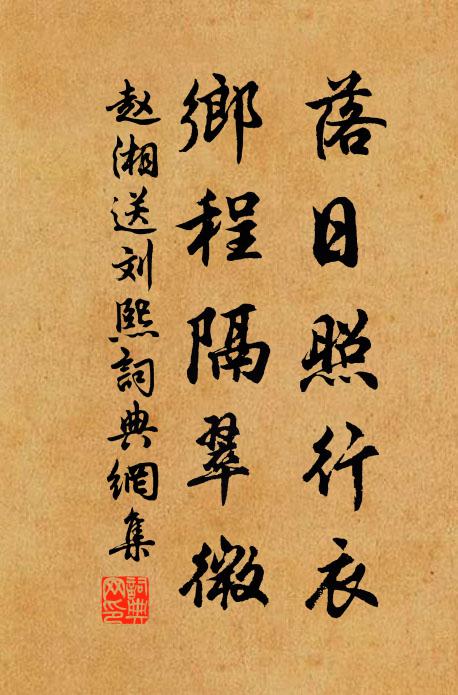 落日照行衣
鄉程隔翠微
赵湘送刘熙詞典網集
詞典網印